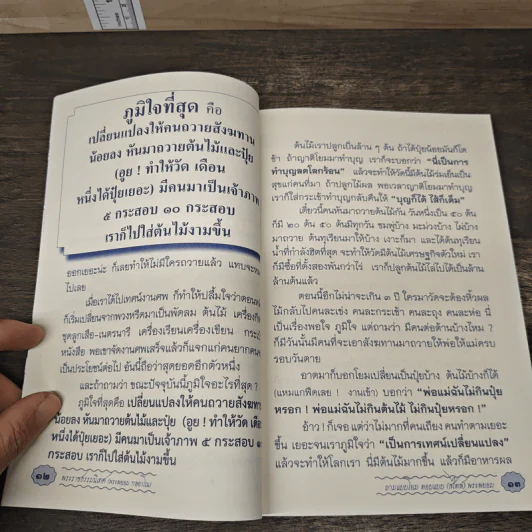 ภูมิใจที่สุด คือ
เปลี่ยนแปลงให้คนถวายสังฆทาน
น้อยลง หันมาถวายต้นไม้และปุ๋ย
(อูย ! ทำให้วัด เดือน
หนึ่งได้ปุ๋ยเยอะ) มีคนมาเป็นเจ้าภาพ
๕ กระสอบ ๑๐ กระสอบ
เราก็ไปใส่ต้นไม้งามขึ้น
ออกเยอะน่ะ ก็เลยทำให้ไม่มีใครถวายแล้ว แทบจะหม
ไปเลย
เมื่อเราได้ไปเทศน์งานศพ ก็ทำให้ปลื้มใจว่าตอนหลั
ก็เริ่มเปลี่ยนจากพวงหรีดมาเป็นพัดลม ต้นไม้ เครื่อง
ชุดลูกเสือ-เนตรนารี เครื่องเรียนเครื่องเขียน กระเ
หนังสือ พอเขาจัดงานศพเสร็จแล้วก็แจกแก่คนยากคน
เป็นประโยชน์ต่อไป อันนี้ถือว่าสุดยอดอีกตัวหนึ่ง
และถ้าถามว่า ขณะปัจจุบันนี้ภูมิใจอะไรที่สุด ?
ภูมิใจที่สุดคือ เปลี่ยนแปลงให้คนถวายสังฆทา
น้อยลง หันมาถวายต้นไม้และปุ๋ย (อูย ! ทำให้วัด เดือ
หนึ่งได้ปุ๋ยเยอะ) มีคนมาเป็นเจ้าภาพ ๕ กระสอบ ๑
กระสอบ เราก็ไปใส่ต้นไม้งามขึ้น
๑๒
พระราชธรรมนิเทศ (พระพยอม กลฺยาโณ)
ต้นไม้เราปลูกเป็นล้าน ๆ ต้น ถ้าได้ปุ๋ยน้อยมันก็โต
ช้า ถ้าญาติโยมมาทำบุญ เราก็จะบอกว่า "นี่เป็นการ
ทำบุญลดโลกร้อน" แล้วจะทำให้วัดนี้มีต้นไม้ร่มเย็นเป็น
สุขแก่คนที่มา ถ้าปลูกไม้ผล พอเวลาญาติโยมมาทำบุญ
เราก็ใส่กระเช้าทำบุญกลับคืนให้ "บุญก็ได้ ไส้ก็เต็ม"
เดี๋ยวนี้คนหันมาถวายต้นไม้กัน วันหนึ่งเป็น ๕๐ ต้น
ก็มี ๒๐ ต้น ๕๐ ต้นมีทุกวัน ชมพู่บ้าง มะม่วงบ้าง ไผ่บ้าง
มาถวาย ต้นทุเรียนมาให้บ้าง เงาะก็มา และได้ต้นทุเรียน
น้ำที่กำลังฮิตที่สุด จะทำให้วัดมีต้นไม้เศรษฐกิจตัวใหม่ เรา
ก็มีซื้อที่ตั้งสองพันกว่าไร่ เราก็ปลูกต้นไม้ใส่ไปได้เป็นล้าน
ล้านต้นแล้ว
ตอนนี้อีกไม่น่าจะเกิน ๓ ปี ใครมาวัดจะต้องหิ้วผล
ไม้กลับไปคนละเข่ง คนละกระเช้า คนละถุง คนละห่อ นี่
เป็นเรื่องพอใจ ภูมิใจ แต่ถามว่า มีคนต่อต้านบ้างไหม ?
ก็มีวันนั้นมีคนที่จะเอาสังฆทานมาถวายให้พ่อให้แม่ครบ
รอบวันตาย
อาตมาก็บอกให้เปลี่ยนเป็นปุ๋ยบ้าง ต้นไม้บ้างก็ได้
(แหมแกฟีดเลย ! งานเข้า) บอกว่า "พ่อแม่ฉันไม่กินปุ๋ย
หรอก ! พ่อแม่ฉันไม่กินต้นไม้ ไม่กินปุ๋ยหรอก !"
อ้าว ! ก็เจอ แต่ว่าไม่มากที่คนเถียง คนทำตามเยอะ
ขึ้น เยอะจนเราภูมิใจว่า "เป็นการเทศน์เปลี่ยนแปลง"
แล้วจะทำให้โลกเรา นี่มีต้นไม้มากขึ้น แล้วก็มีอาหารผล
ถามแบบโยม ตอบแบบ (สไตล์) พระพยอม
๑๓